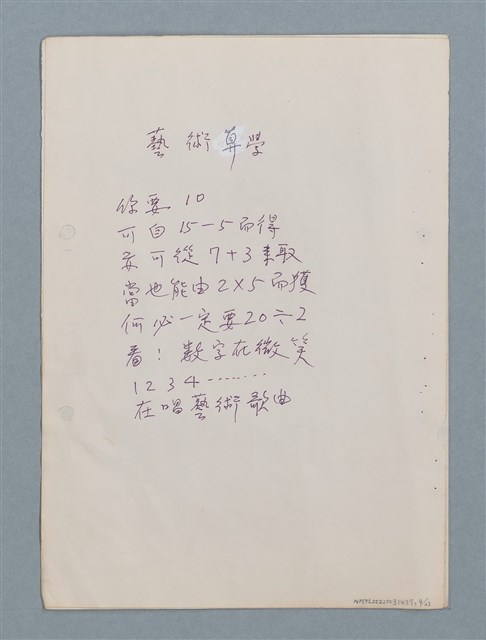 藝術算學
你要 10
可自 15-5 而得
亦可從 7+3 來取
當也能由 2×5 而獲
何必一定要 20÷2
看！數字在微笑
1 2 3 4 -------
在唱藝術歌曲